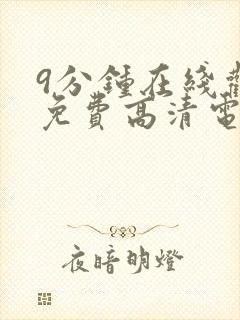 9分鍾在线觀
免費高清電
夜暗明燈